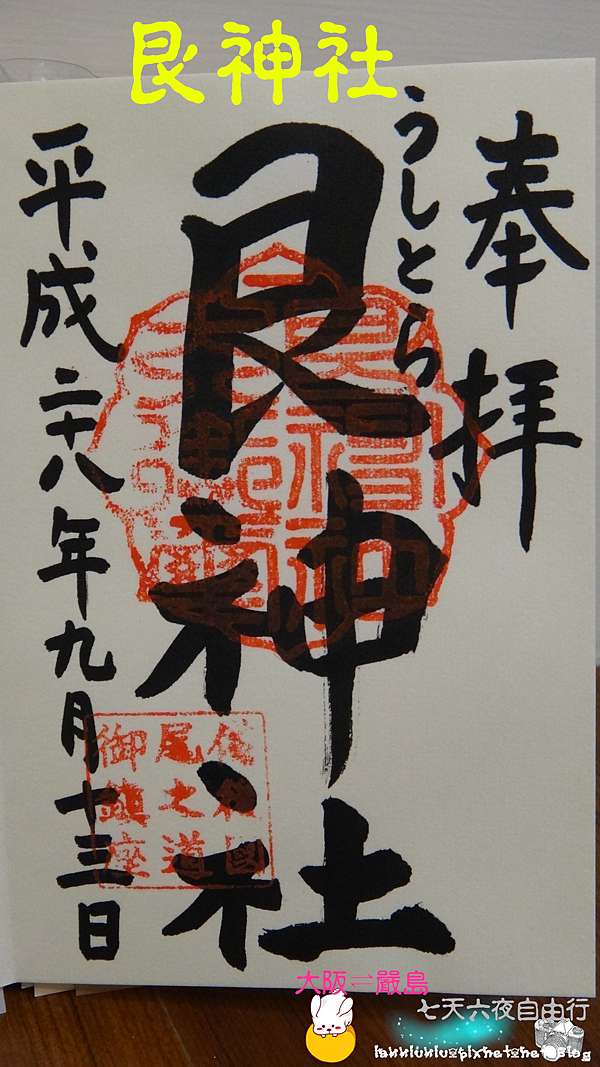 艮神社
奉拝
うしとら
艮神社
平成二十八年九月十三日
備後國
尾之道
御鎮座
大阪⇌嚴島
七天六夜自由行